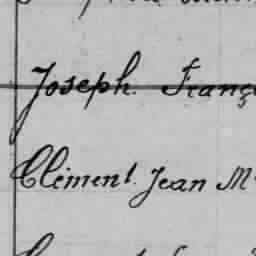 Joseph. Franç
Clément. Jean M